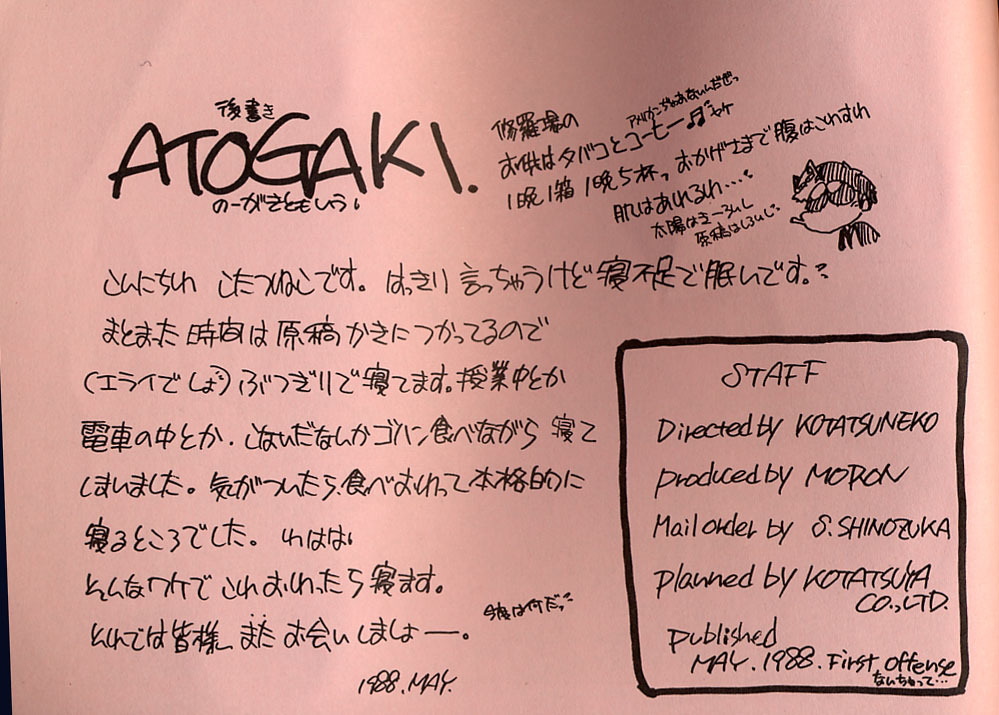 後書き
ATOGAKI.
のーがきともいう。
修羅場の
お供はタバコとコーヒー
アメリカンじゃあないんだぜっ
1晩1箱 1晩5杯っ おかげさまで腹はこわすわ
肌はあれるわ…
太陽はきーろいし
原稿はしろいし。
こんにちわ こたつねこです。はっきり言っちゃうけど寝不足で眠いです。
まとまった時間は原稿かきにつかってるので
(エライでしょ)ぶつぎりで寝てます。授業中とか
電車の中とか. こないだなんかゴハン食べながら寝て
しまいました。気がついたら、食べおわって本格的に
寝るところでした。わはは
そんなワケで これおわったら寝ます。
今度は何だっ
それでは皆様、また お会いしましょー。
1988.MAY.
STAFF
Directed by KOTATSUNEKO
produced by MORON
Mail order by S.SHINOZUKA
planned by KOTATSUYA
CO.,LTD.
published
MAY.1988.First offense
なんちゃって…